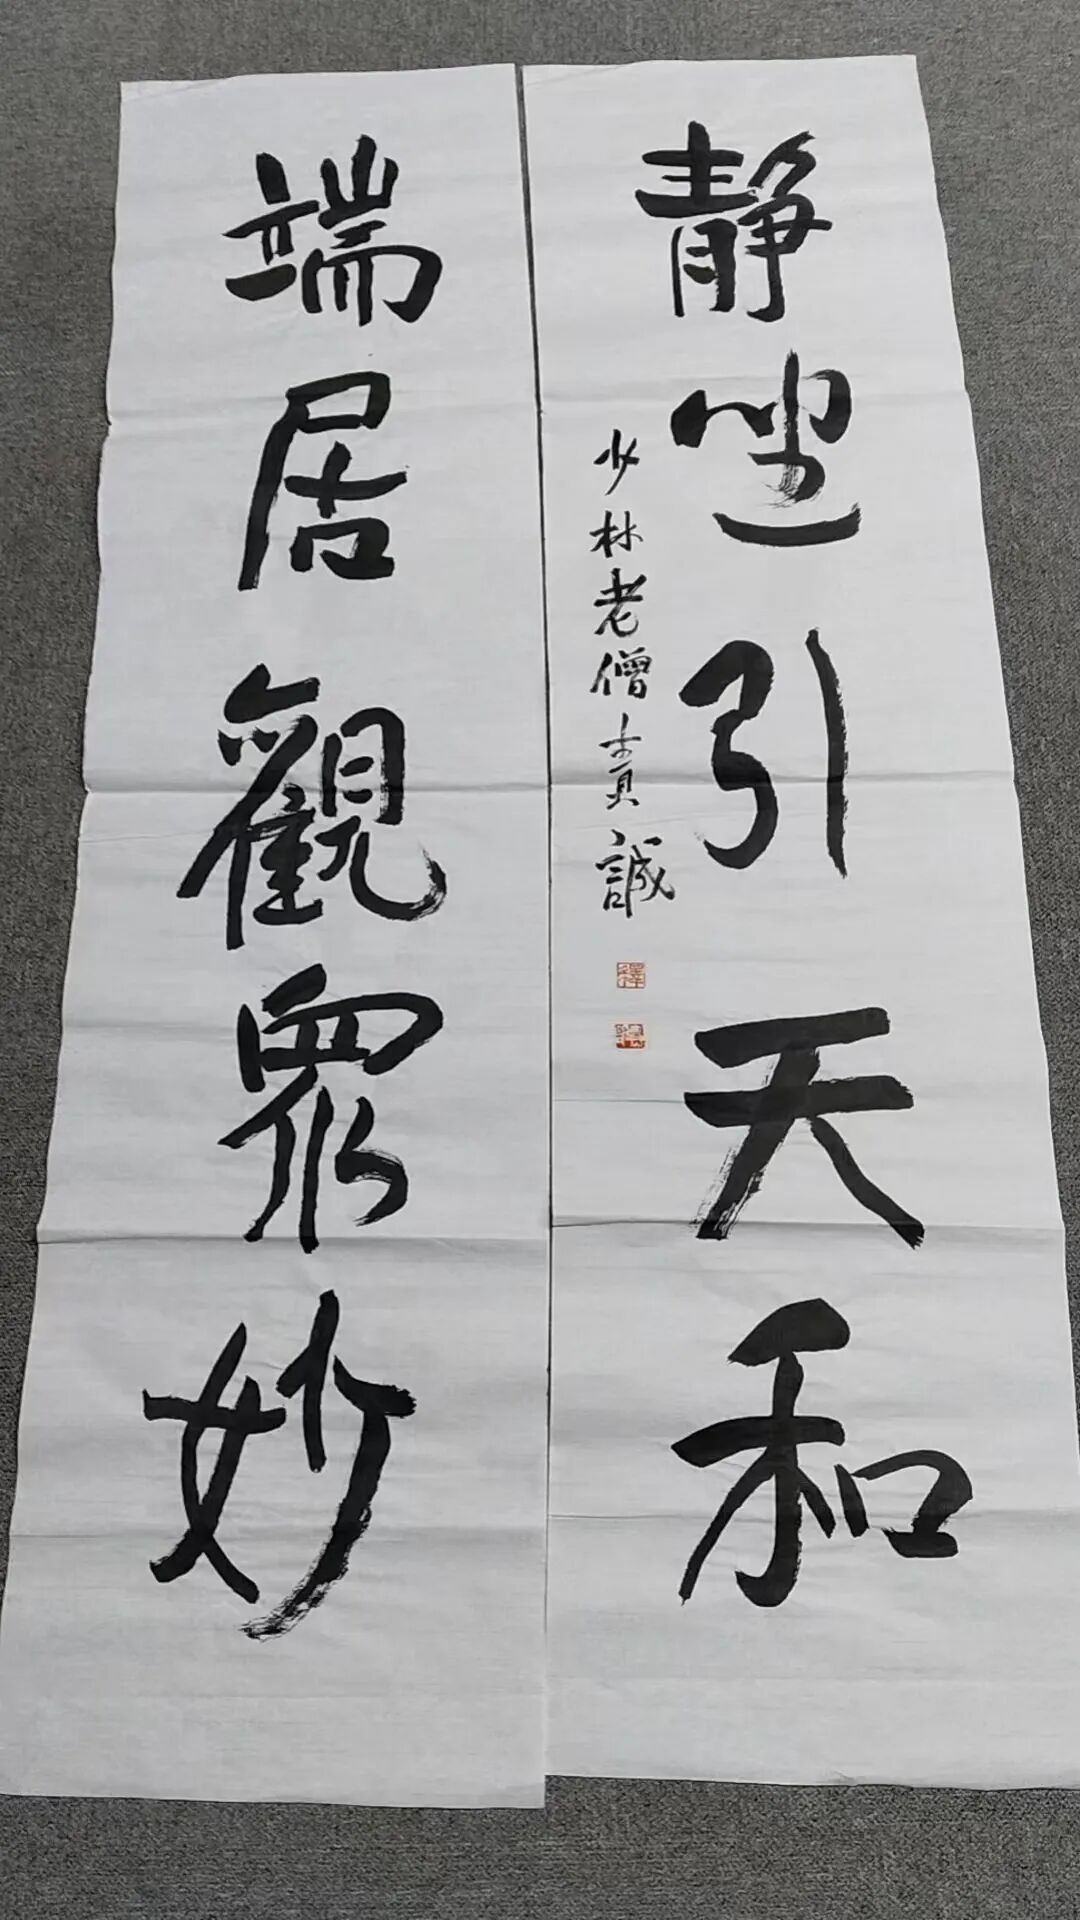 静坐引天和
少林老僧誠
釋
端居觀衆妙